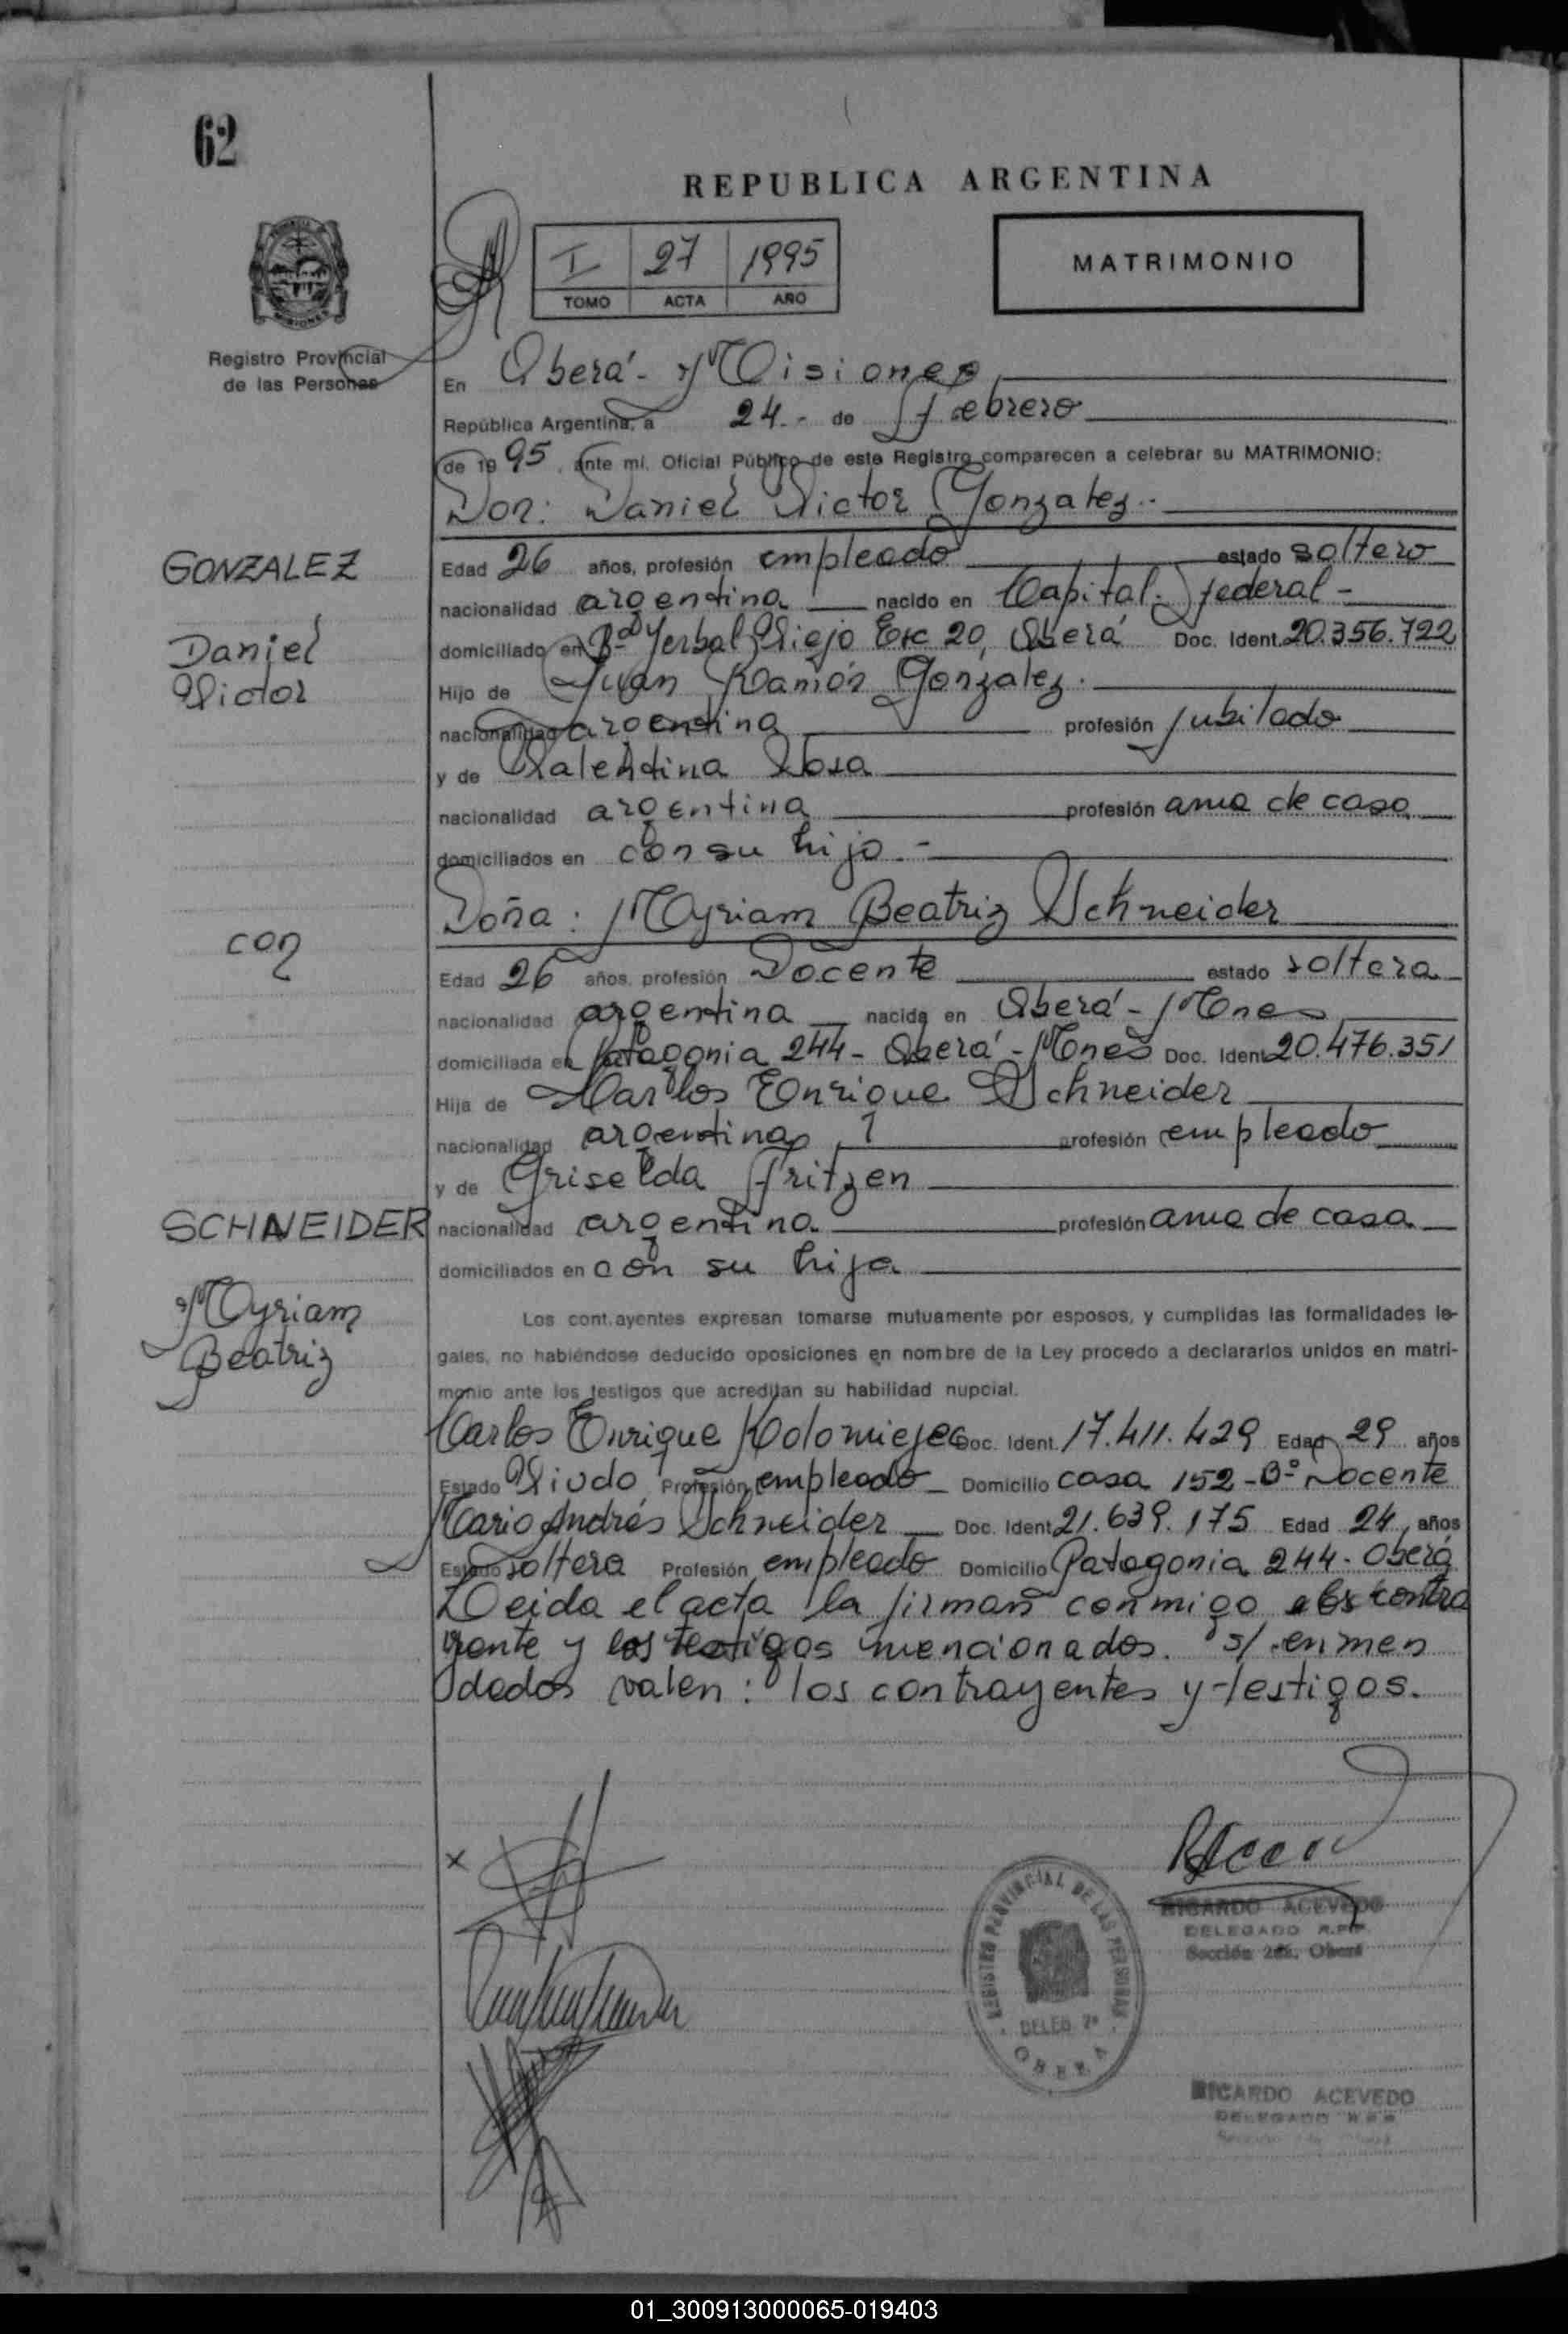 62
REPUBLICA ARGENTINA
I 27 1995
TOMO ACTA AÑO
MATRIMONIO
MISIONES
Registro Provincial
de las Personas
En Oberá - Misiones
República Argentina, a 24.- de febrero
de 1995, ante mí, Oficial Público de este Registro comparecen a celebrar su MATRIMONIO:
Don: Daniel Victor Gonzalez.-
GONZALEZ
Daniel
Victor
Edad 26 años, profesión empleado estado soltero
nacionalidad argentina nacido en Capital Federal -
domiciliado en Bº Yerbal Viejo Esc 20, Oberá Doc. Ident. 20.356.722
Hijo de Juan Ramón Gonzalez.
nacionalidad argentina profesión jubilado
y de Valentina Sosa
nacionalidad argentina profesión ama de casa
domiciliados en con su hijo.-
con
Doña: Myriam Beatriz Schneider
Edad 26 años, profesión Docente estado soltera
nacionalidad argentina nacida en Oberá - Mnes
domiciliada en Patagonia 244 - Oberá - Mnes Doc. Ident. 20.476.351
Hija de Carlos Enrique Schneider
nacionalidad argentina profesión empleado
y de Griselda Fritzen
SCHNEIDER
Myriam
Beatriz
nacionalidad argentina profesión ama de casa
domiciliados en con su hija
Los cont.ayentes expresan tomarse mutuamente por esposos, y cumplidas las formalidades le-
gales, no habiéndose deducido oposiciones en nombre de la Ley procedo a declararlos unidos en matri-
monio ante los testigos que acreditan su habilidad nupcial.
Carlos Enrique Kolomiejec Doc. Ident. 17.411.429 Edad 29 años
Estado Viudo Profesión empleado Domicilio casa 152 - Bº Docente
Mario Andrés Schneider Doc. Ident. 21.639.175 Edad 24, años
Estado soltero Profesión empleado Domicilio Patagonia 244 - Oberá
Leida el acta la firman conmigo los contra
yente y los testigos mencionados. s/ enmen
dados valen: los contrayentes y testigos.
x
RICARDO ACEVEDO
DELEGADO R.P.P.
Sección 2da. Oberá
REGISTRO PROVINCIAL DE LAS PERSONAS
DELEG. 2ª
OBERA
RICARDO ACEVEDO
DELEGADO R.P.P.
01_300913000065-019403